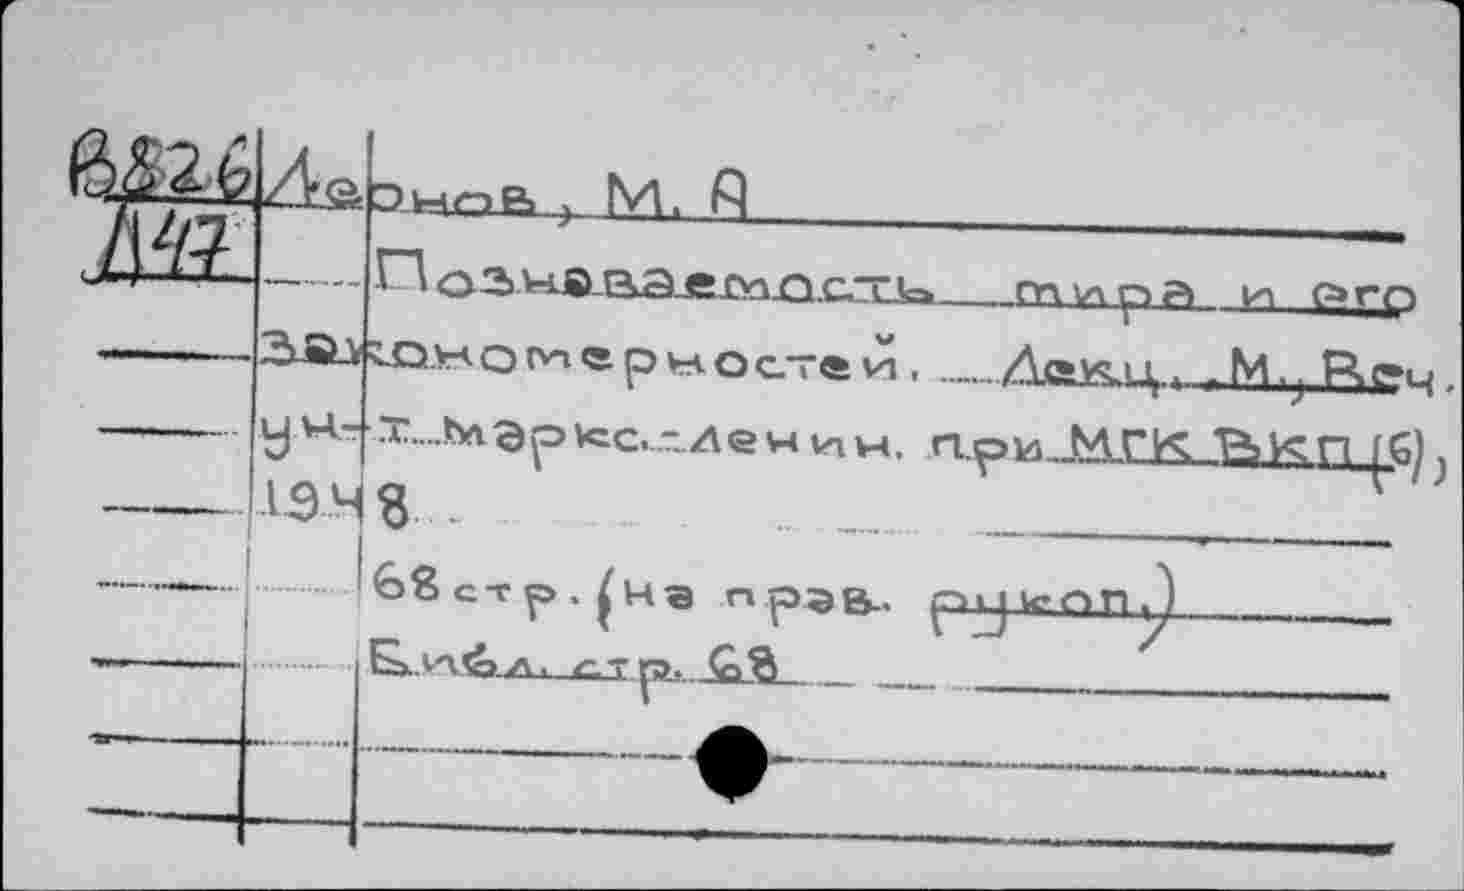 В826 Леонов, М. А
Л47 Познаваемость мира и его
закономерностей. Лекц., М., Веч.
ун-т Маркс.-ленин. при МГК ВКП(б),
1948.
68 стр. (на прав. рукоп.)
Библ. стр. 68